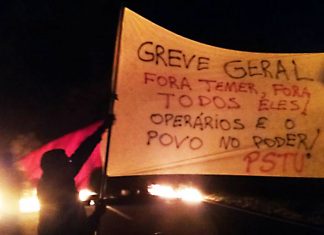 GREVE GERAL
FORA TEMER, FORA
TODOS ELES!
OPERÁRIOS E O
POVO NO PODER!
PSTU